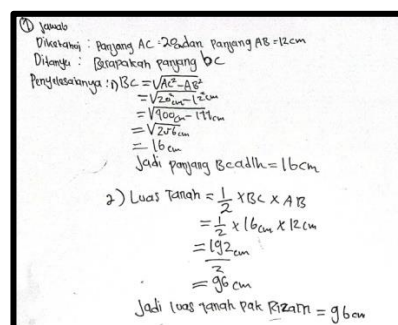 ① Jawab
Diketahui : panjang AC = 20 dan panjang AB = 12 cm
Ditanya : Berapakah panjang bC
Penyelesaianya : 1) BC = √AC² - AB²
= √20² cm - 12² cm
= √400 cm - 144 cm
= √256 cm
= 16 cm
Jadi panjang BC adlh = 16 cm
2) Luas Tanah = 1/2 x BC x AB
= 1/2 x 16 cm x 12 cm
= 192 cm / 2
= 96 cm
Jadi luas tanah pak Rizam = 96 cm